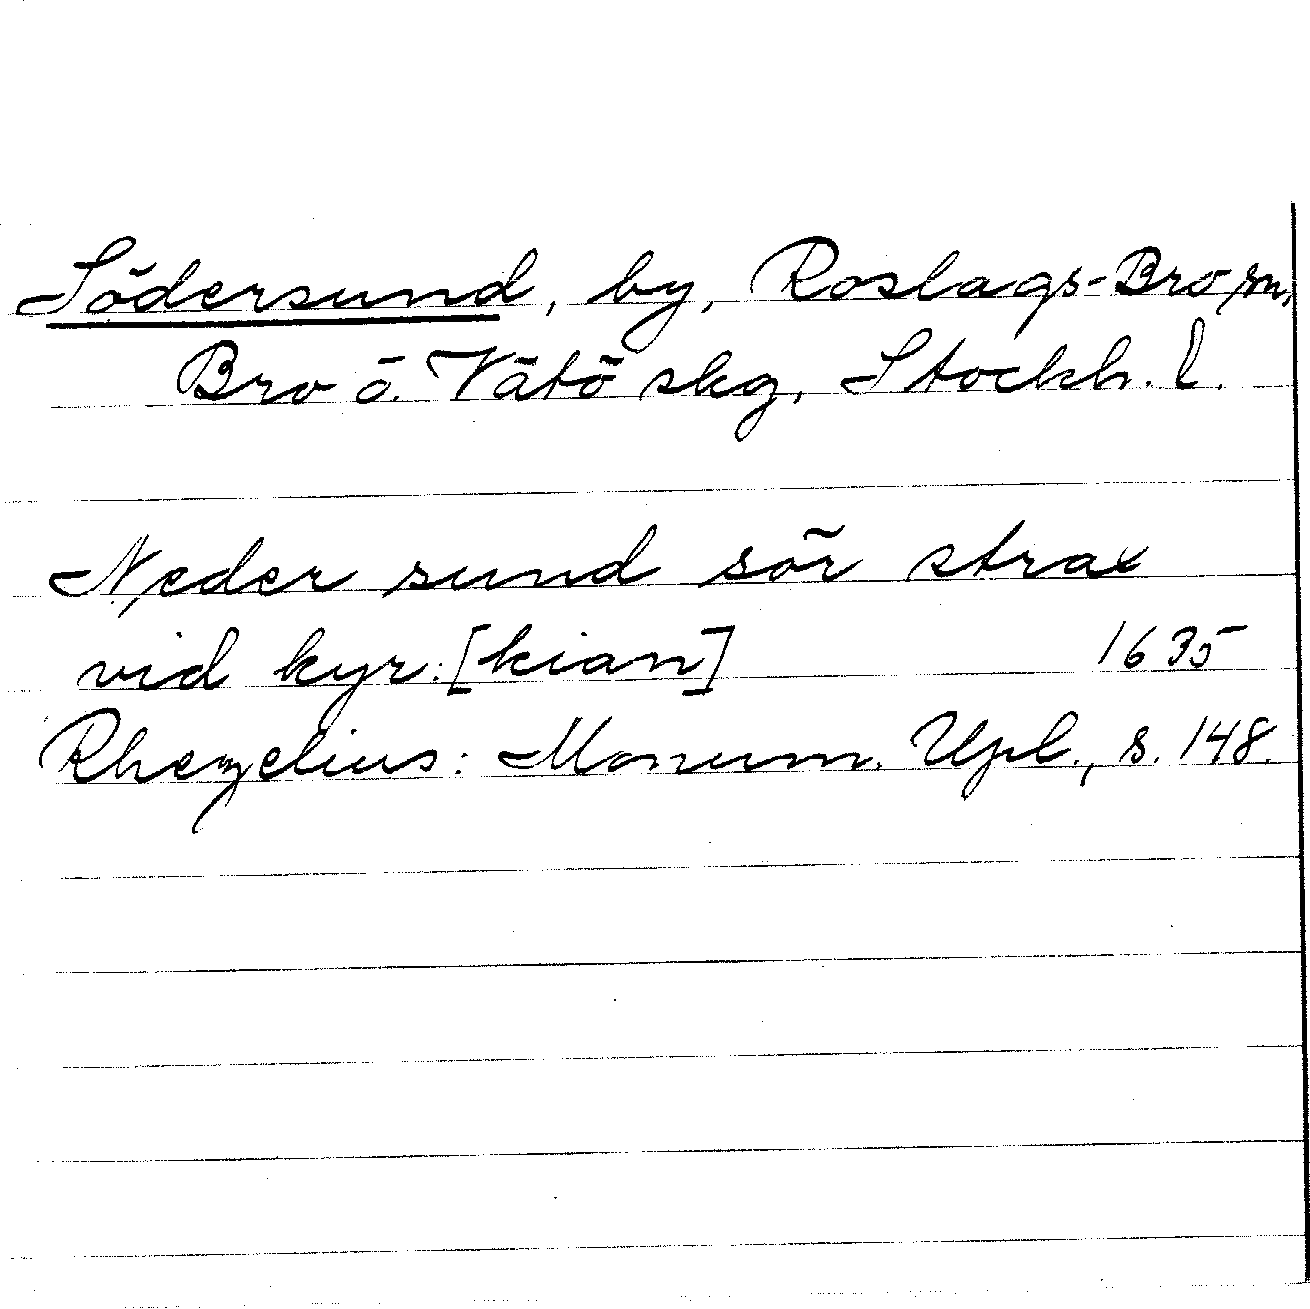 Södersund, by, Roslags-Bro sn,
Bro o. Vätö skg, Stockh. l.
Neder sund sör strax
vid kyr:[kian] 1635
Rhezelius: Monum. Upl., s. 148.